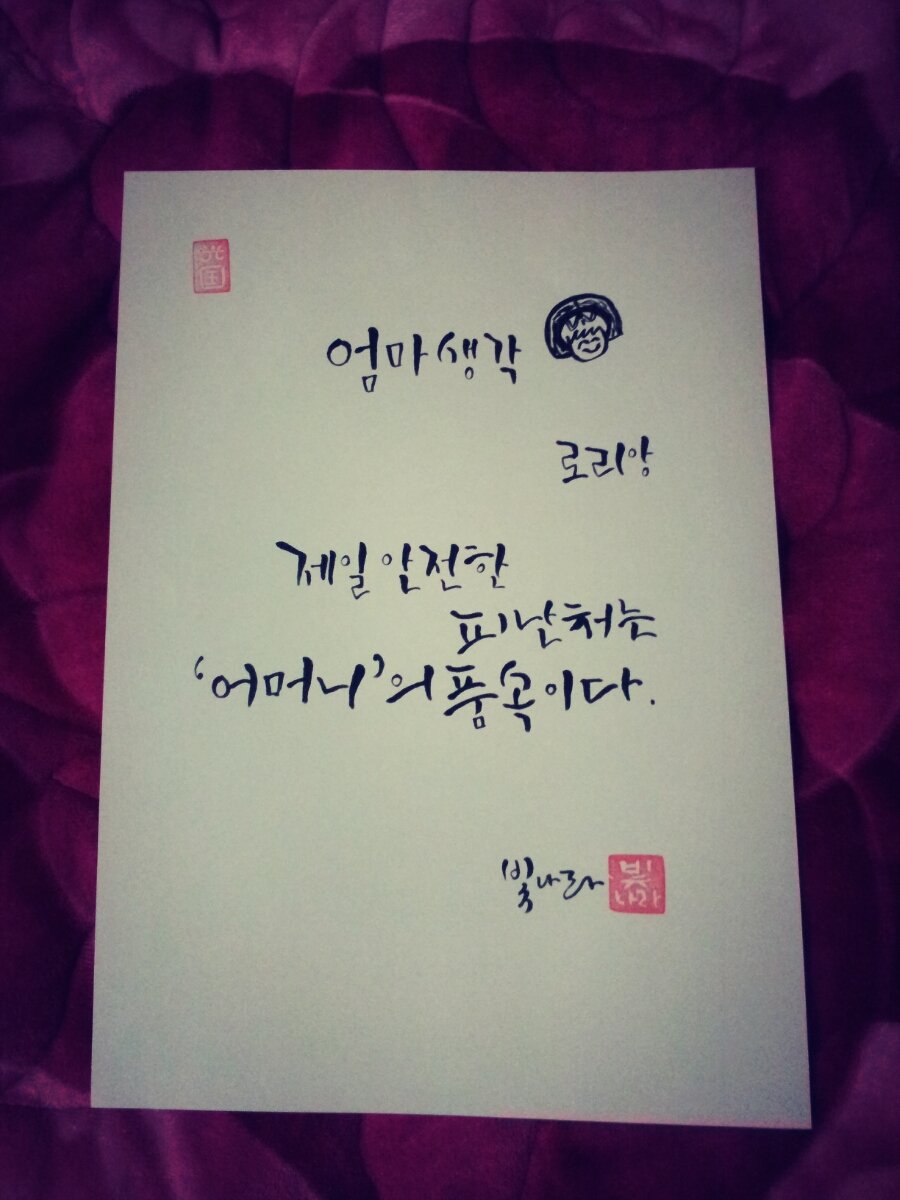 光国
엄마생각
로리앙
제일 안전한
피난처는
'어머니'의 품속이다.
빛나라
빛
나라